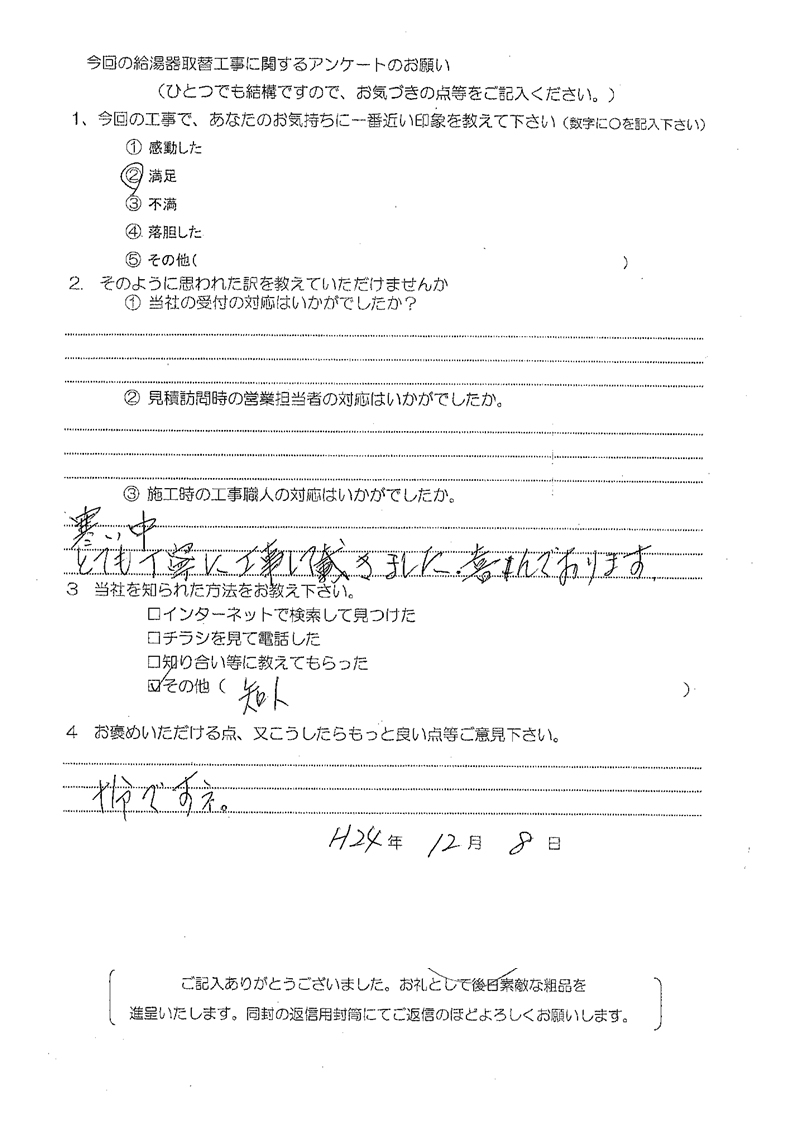 今回の給湯器取替工事に関するアンケートのお願い
（ひとつでも結構ですので、お気づきの点等をご記入ください。）
1、今回の工事で、あなたのお気持ちに一番近い印象を教えて下さい（数字に〇を記入下さい）
① 感動した
② 満足
③ 不満
④ 落胆した
⑤ その他（ ）
2. そのように思われた訳を教えていただけませんか
① 当社の受付の対応はいかがでしたか？
② 見積訪問時の営業担当者の対応はいかがでしたか。
③ 施工時の工事職人の対応はいかがでしたか。
寒い中
とても丁寧に工事して戴きました。喜んでおります。
3 当社を知られた方法をお教え下さい。
□インターネットで検索して見つけた
□チラシを見て電話した
□知り合い等に教えてもらった
☑その他（ 知人 ）
4 お褒めいただける点、又こうしたらもっと良い点等ご意見下さい。
ですネ。
H24年 12月 8日
ご記入ありがとうございました。お礼として後日素敵な粗品を
進呈いたします。同封の返信用封筒にてご返信のほどよろしくお願いします。